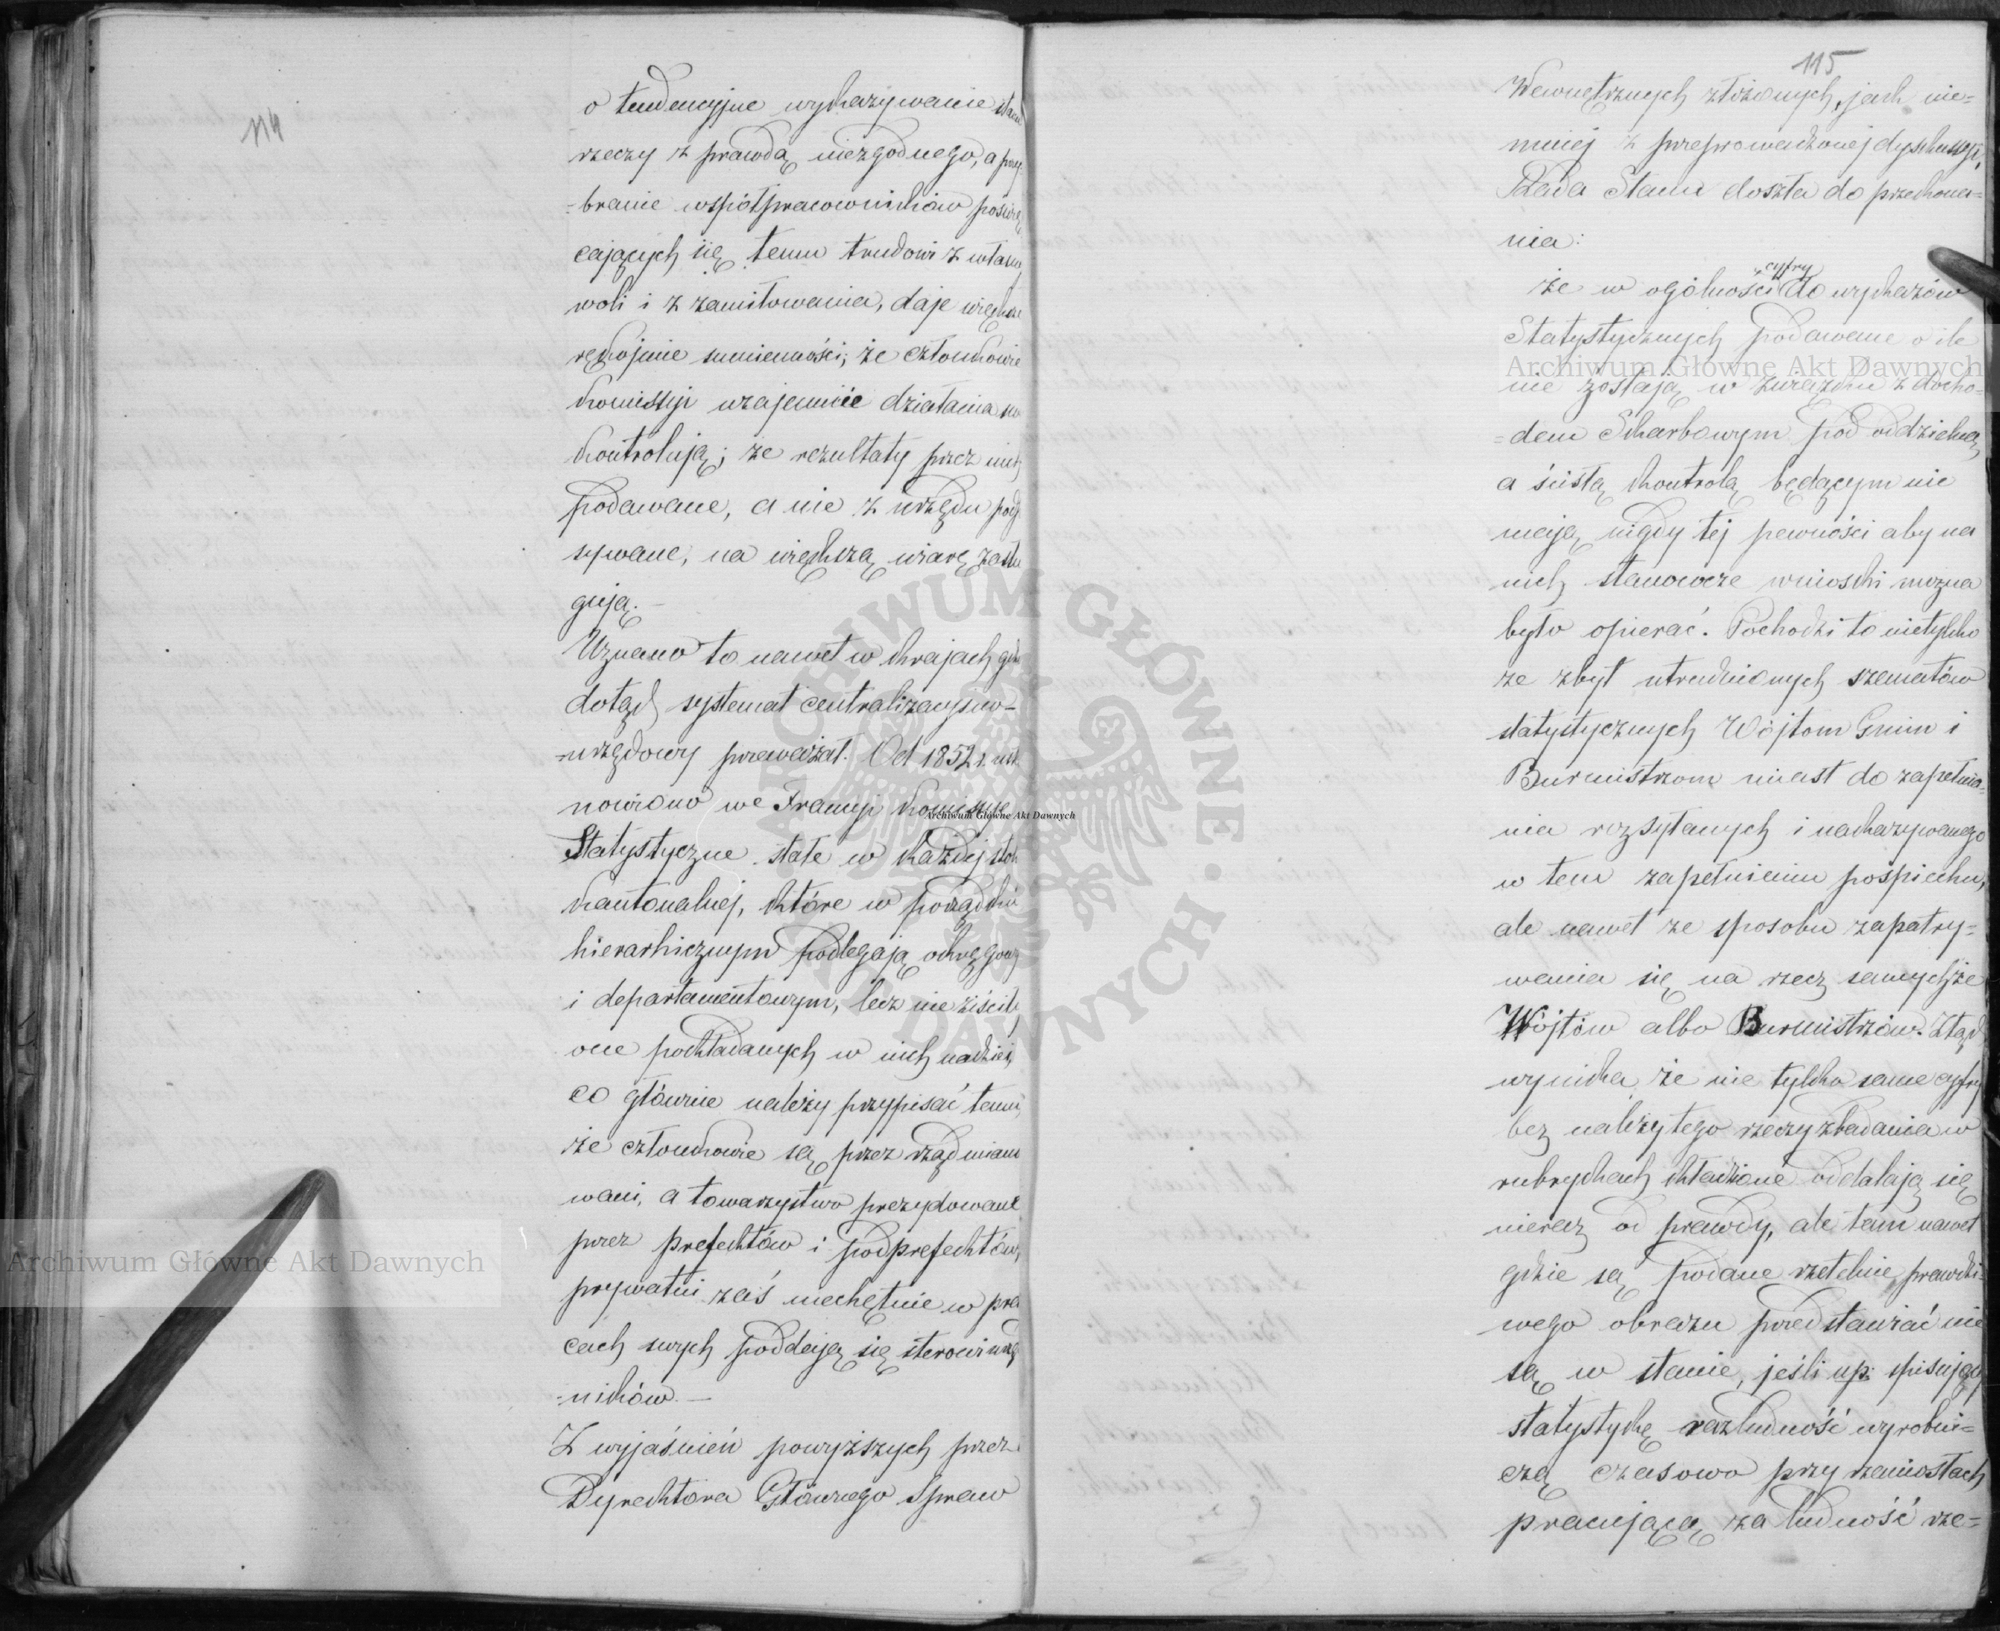 114
o tendencyjne wykazywanie stanu
rzeczy z prawdą niezgodnego, a przy-
-branie współpracowników poświę
cających się temu trudowi z własnej
woli i z zamiłowania, daje większe
rękojmie sumienności; że członkowie
Komissyi wzajemnie działania swe
kontrolują; że rezultaty przez nich
podawane, a nie z urzędu pod
sywane, na większą wiarę zasłu
gują. —
Uznano to nawet w krajach gdzie
dotąd systemat centralizacyjno-
-urzędowy przeważał. Od 1852 r. usta
nowiono we Francyi Komissye
Statystyczne stałe w każdej
kantonalnej, które w porządku
hierarhicznym podlegają okręgowym
i departamentowym, lecz nie ziściły
one pokładanych w nich nadziei,
co głównie należy przypisać temu,
że członkowie są przez rząd miano
wani, a towarzystwa prezydowane
przez prefektów i podprefektów,
prywatni zaś niechętnie w pra
cach swych poddają się sterowi urzęd
-ników. —
Z wyjaśnień powyższych przez
Dyrektora Głównego Spraw
115
Wewnętrznych złożonych, jak nie=
mniej z przeprowadzonej dyskussyi,
Rada Stanu doszła do przekona=
nia:
że w ogólności cyfry do wykazów
Statystycznych podawane o ile
nie zostają w związku z docho=
=dem Skarbowym pod oddzielną
a ścisłą kontrolą będącym nie
mają nigdy tej pewności aby na
nich stanowcze wnioski można
było opierać. Pochodzi to nietylko
ze zbyt utrudnionych szematów
statystycznych Wójtom Gmin i
Burmistrzom miast do zapełnia=
nia rozsyłanych i nakazywanego
w tem zapełnieniu pośpiechu,
ale nawet ze sposobu zapatry=
wania się na rzecz samychże
Wójtów albo Burmistrzów. Ztąd
wynika, że nie tylko same cyfry
bez należytego rzeczy zbadania w
rubrykach kładzione oddalają się
nieraz od prawdy, ale tam nawet
gdzie są podane rzetelnie, prawdzi=
wego obrazu przedstawiać nie
są w stanie, jeśli np: spisujący
statystykę raz ludność wyrobni=
czą czasowo przy rzemiosłach
pracującą za ludność rze=
Archiwum Główne Akt Dawnych
Archiwum Główne Akt Dawnych
Archiwum Główne Akt Dawnych
ARCHIWUM GŁÓWNE AKT DAWNYCH